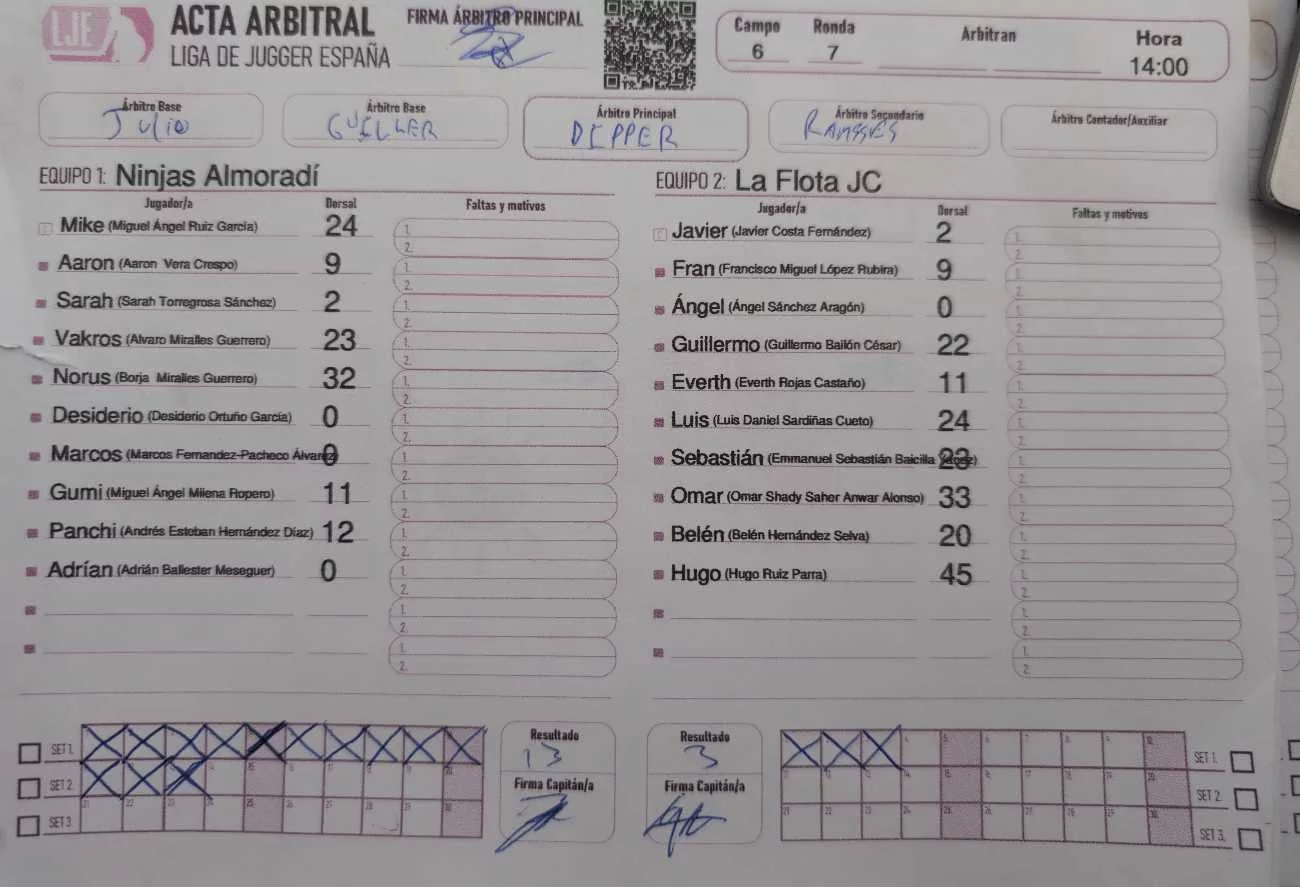 LJE
ACTA ARBITRAL
LIGA DE JUGGER ESPAÑA
FIRMA ÁRBITRO PRINCIPAL
Campo Ronda Arbitran Hora
6 7 14:00
Árbitro Base Árbitro Base Árbitro Principal Árbitro Secundario Árbitro Contador/Auxiliar
Julio GUILLER DIPPER RAMSSES
EQUIPO 1: Ninjas Almoradí
Jugador/a Dorsal Faltas y motivos
Mike (Miguel Ángel Ruiz García) 24 1. 2.
Aaron (Aaron Vera Crespo) 9 1. 2.
Sarah (Sarah Torregrosa Sánchez) 2 1. 2.
Vakros (Alvaro Miralles Guerrero) 23 1. 2.
Norus (Borja Miralles Guerrero) 32 1. 2.
Desiderio (Desiderio Ortuño García) 0 1. 2.
Marcos (Marcos Fernandez-Pacheco Álvarez) 0 1. 2.
Gumi (Miguel Ángel Milena Ropero) 11 1. 2.
Panchi (Andrés Esteban Hernández Díaz) 12 1. 2.
Adrían (Adrián Ballester Meseguer) 0 1. 2.
1. 2.
1. 2.
EQUIPO 2: La Flota JC
Jugador/a Dorsal Faltas y motivos
Javier (Javier Costa Fernández) 2 1. 2.
Fran (Francisco Miguel López Rubira) 9 1. 2.
Ángel (Ángel Sánchez Aragón) 0 1. 2.
Guillermo (Guillermo Bailón César) 22 1. 2.
Everth (Everth Rojas Castaño) 11 1. 2.
Luis (Luis Daniel Sardiñas Cueto) 24 1. 2.
Sebastián (Emmanuel Sebastián Baicilla 1. 2.
Omar (Omar Shady Saher Anwar Alonso) 33 1. 2.
Belén (Belén Hernández Selva) 20 1. 2.
Hugo (Hugo Ruiz Parra) 45 1. 2.
1. 2.
1. 2.
SET 1.
SET 2
SET 3
Resultado
13
Firma Capitán/a
Resultado
3
Firma Capitán/a
SET 1.
SET 2.
SET 3.